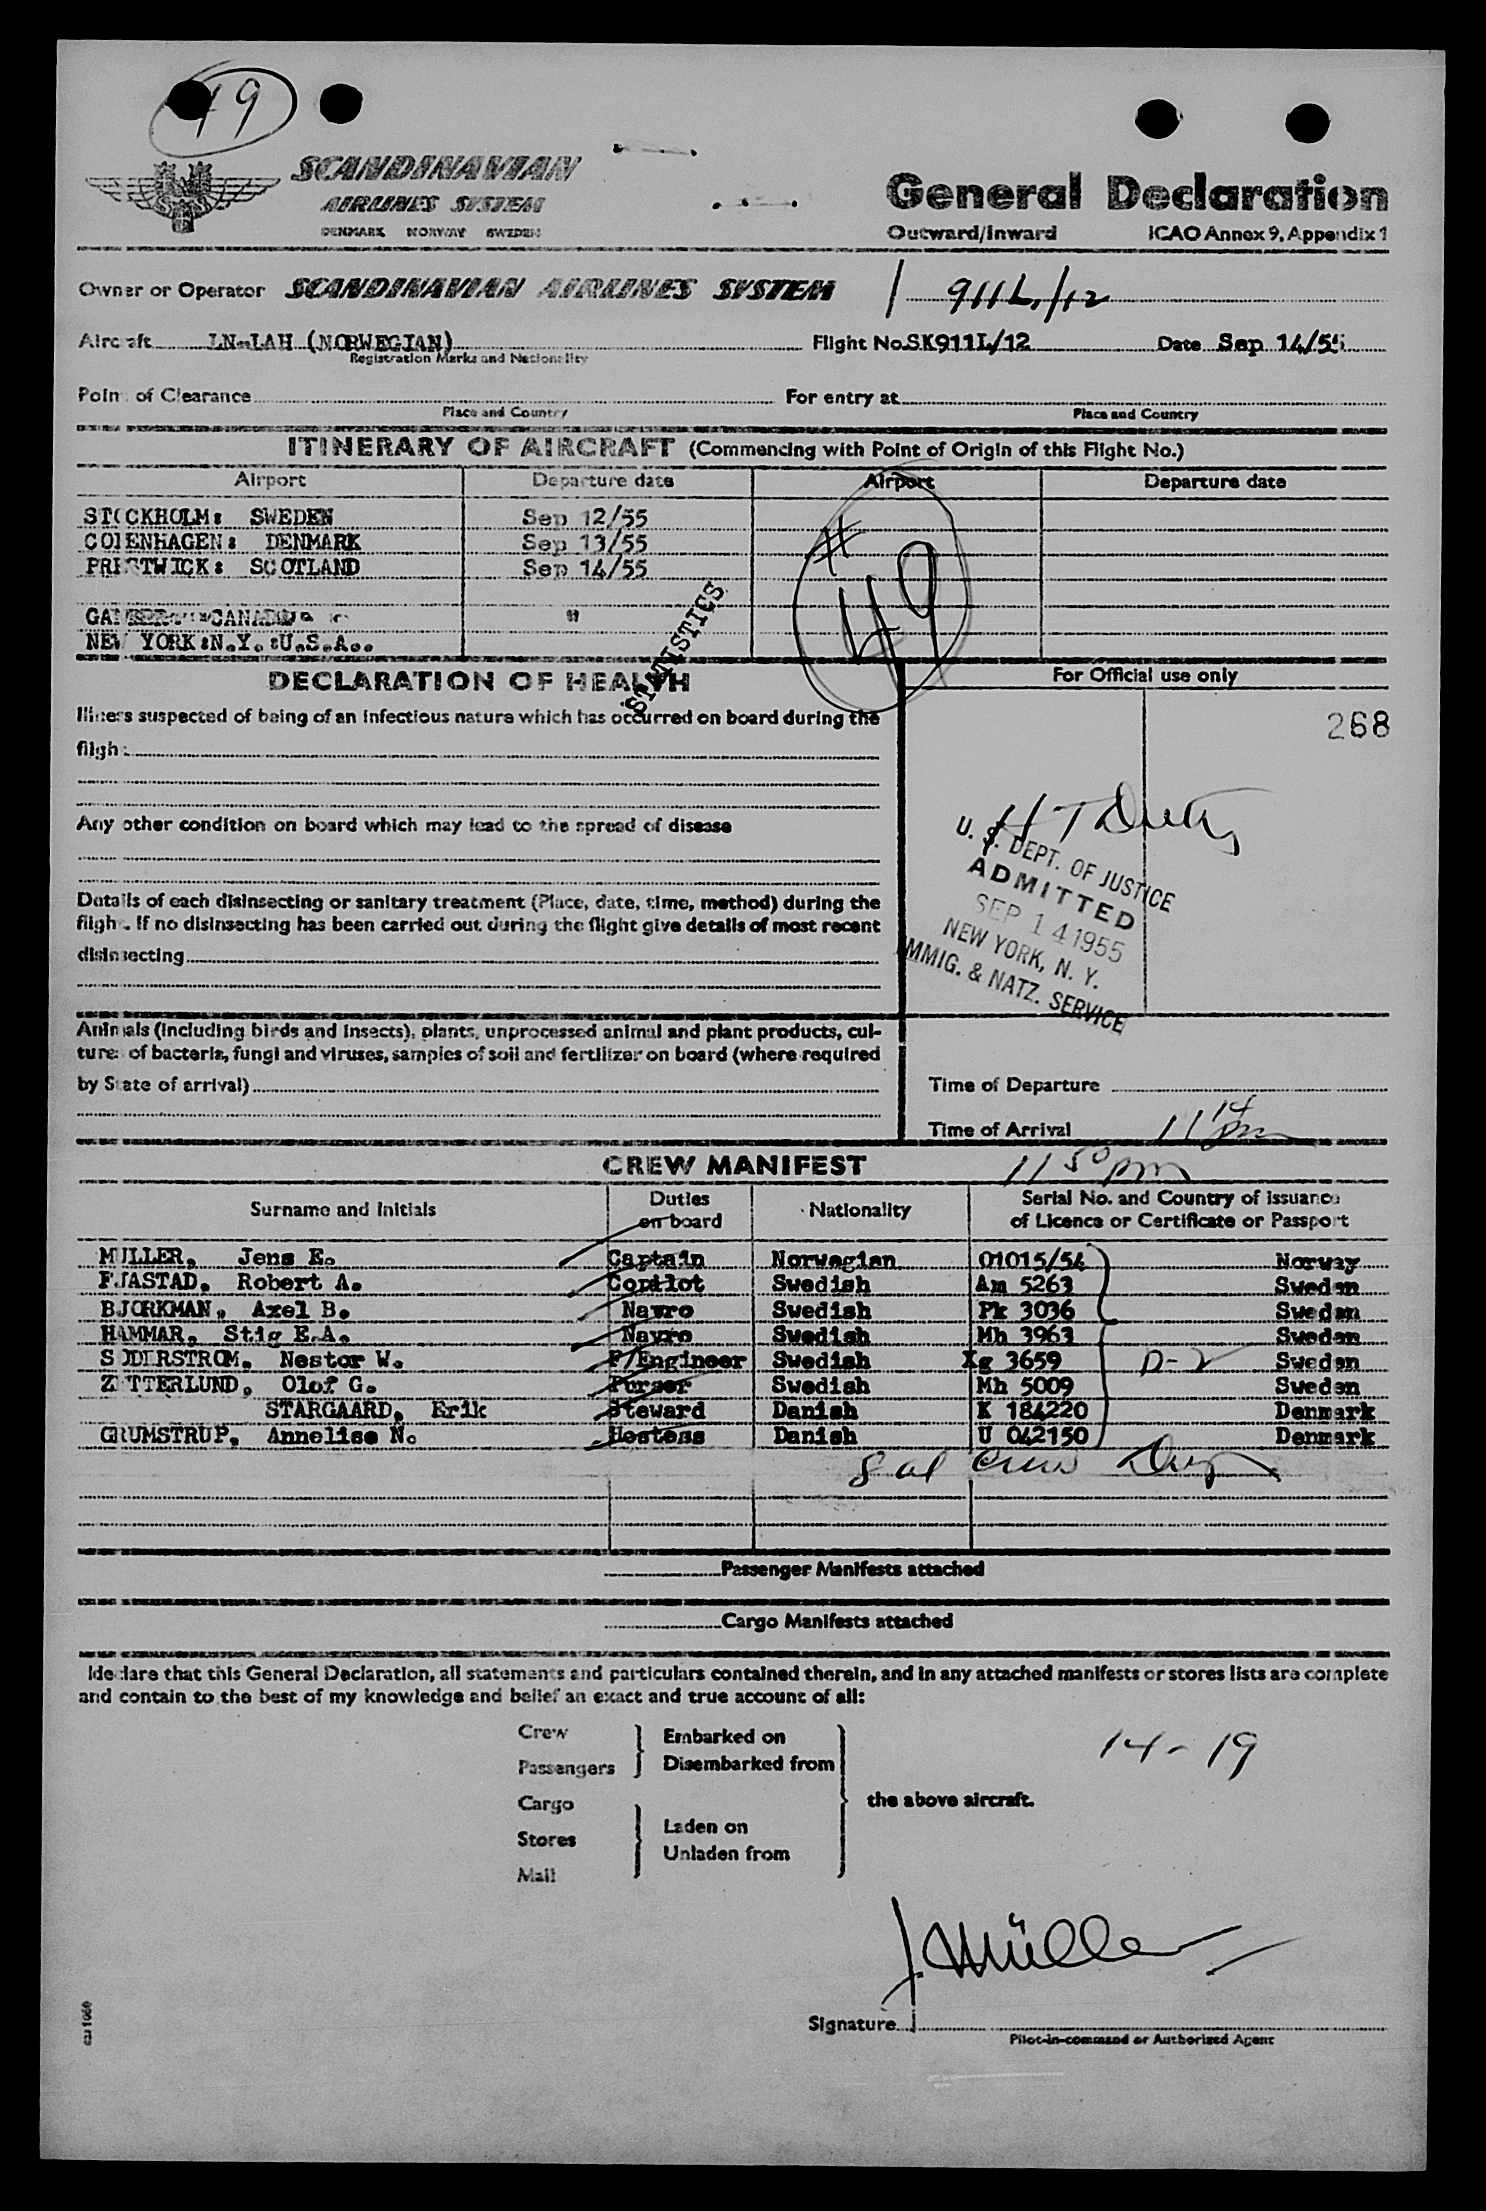 49
SCANDINAVIAN
AIRLINES SYSTEM
DENMARK NORWAY SWEDEN
General Declaration
Outward/Inward ICAO Annex 9, Appendix 1
Owner or Operator SCANDINAVIAN AIRLINES SYSTEM / 911L/12
Aircraft LN-LAH (NORWEGIAN) Flight No. SK911L/12 Date Sep 14/55
Registration Marks and Nationality
Point of Clearance For entry at
Place and Country Place and Country
ITINERARY OF AIRCRAFT (Commencing with Point of Origin of this Flight No.)
Airport Departure date Airport Departure date
STOCKHOLM: SWEDEN Sep 12/55
COPENHAGEN: DENMARK Sep 13/55
PRESTWICK: SCOTLAND Sep 14/55
"
NEW YORK:N.Y.:U.S.A..
# 49
STATISTICS
DECLARATION OF HEALTH
Illness suspected of being of an infectious nature which has occurred on board during the
flight
Any other condition on board which may lead to the spread of disease
Details of each disinsecting or sanitary treatment (Place, date, time, method) during the
flight. If no disinsecting has been carried out during the flight give details of most recent
disinsecting
Animals (including birds and insects), plants, unprocessed animal and plant products, cul-
tures of bacteria, fungi and viruses, samples of soil and fertilizer on board (where required
by State of arrival)
For Official use only
268
U. S. DEPT. OF JUSTICE
ADMITTED
SEP 14 1955
NEW YORK, N. Y.
IMMIG. & NATZ. SERVICE
Time of Departure
Time of Arrival 11 14 pm
11 50 pm
CREW MANIFEST
Surname and Initials Duties on board Nationality Serial No. and Country of issuance of Licence or Certificate or Passport
MULLER, Jens E. Captain Norwegian 01015/54 Norway
FJASTAD, Robert A. Copilot Swedish Am 5263 Sweden
BJORKMAN, Axel B. Navro Swedish Pk 3036 Sweden
HAMMAR, Stig E.A. Navro Swedish Mh 3963 Sweden
SODERSTROM, Nestor W. F/Engineer Swedish Xg 3659 D-2 Sweden
ZETTERLUND, Olof G. Purser Swedish Mh 5009 Sweden
STARGAARD, Erik Steward Danish K 184220 Denmark
GRUMSTRUP, Annelise N. Hostess Danish U 042150 Denmark
8 al crew
Passenger Manifests attached
Cargo Manifests attached
I declare that this General Declaration, all statements and particulars contained therein, and in any attached manifests or stores lists are complete
and contain to the best of my knowledge and belief an exact and true account of all:
Crew
Passengers
Embarked on
Disembarked from
Cargo
Stores
Mail
Laden on
Unladen from
the above aircraft.
14-19
J. Müller
Signature
Pilot-in-command or Authorized Agent